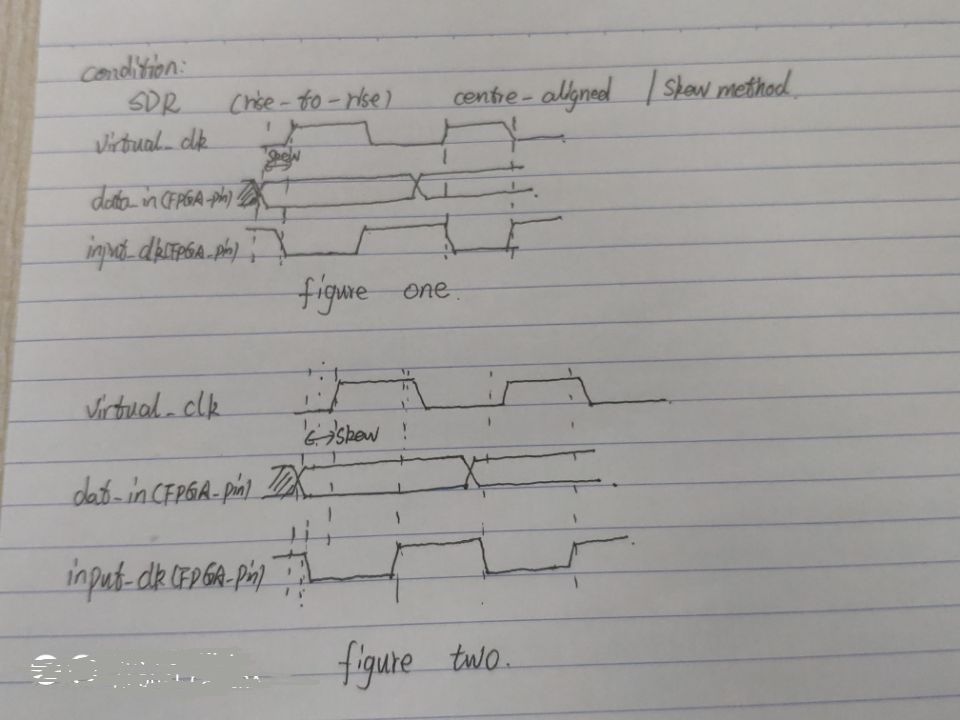 condition:
SDR (rise-to-rise) centre-aligned / skew method.
virtual_clk
skew
data_in(FPGA-pin)
input_clk(FPGA-pin)
figure one.
virtual_clk
skew
dat-in(FPGA-pin)
input-clk(FPGA-pin)
figure two.